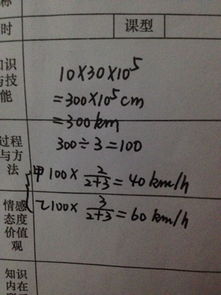 时
课型
知识
与技
能
10×30×10⁵
=300×10⁵cm
=300km
300÷3=100
过程
与方
法
甲100×2/(2+3)=40km/h
乙100×3/(2+3)=60km/h
情感
态度
价值
观
知识
内在